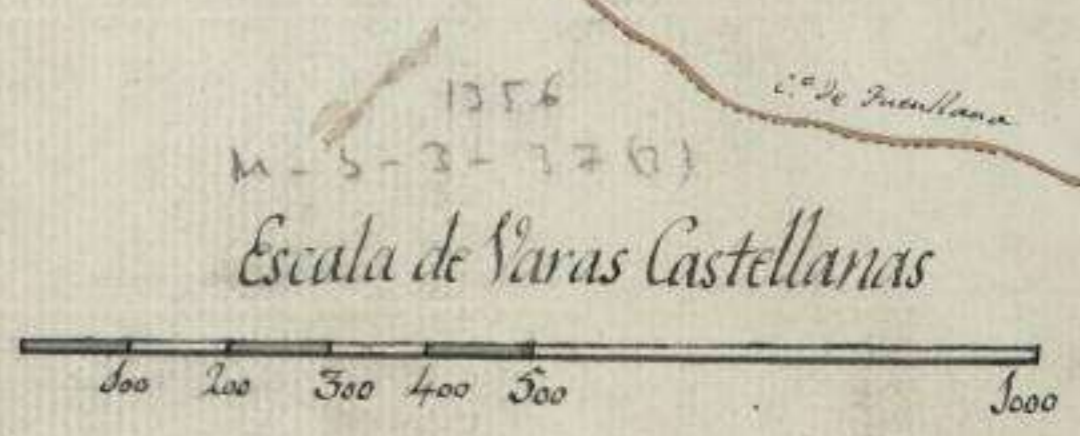 C.º de Fuenllana
1356
M - 5 - 3 - 37 (3)
Escala de Varas Castellanas
100 200 300 400 500 1000